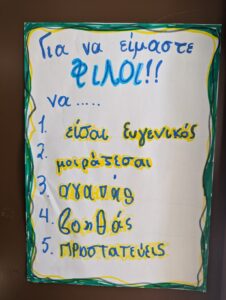 Για να είμαστε
ΦΙΛΟΙ!!
να.....
1. είσαι ευγενικός
2. μοιράζεσαι
3. αγαπάς
4. βοηθάς
5. ΠΡΟΣΤΑΤΕΥΕΙΣ